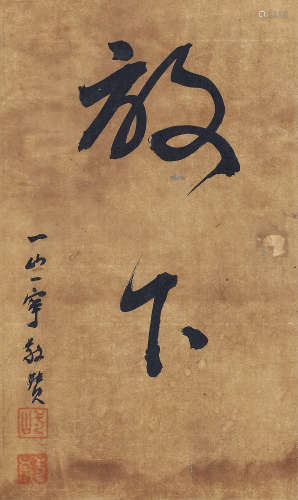 放下
一山一寧敬贊